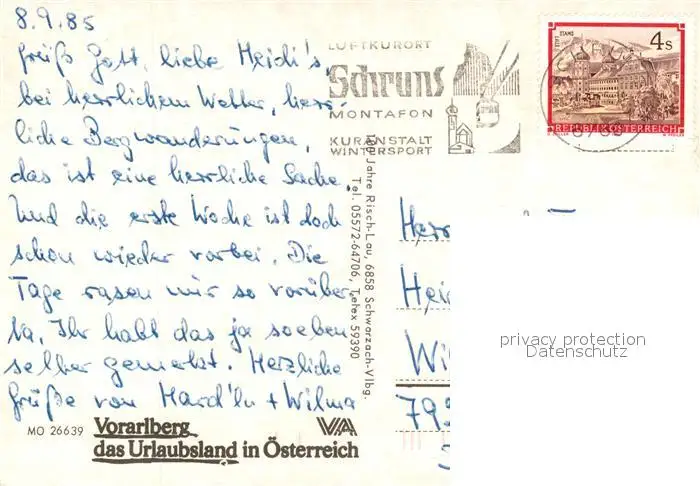 8.9.85
Grüß Gott, liebe Heidi's,
bei herrlichem Wetter, herr-
liche Bergwanderungen,
das ist eine herrliche Sache.
Und die erste Woche ist doch
schon wieder vorbei. Die
Tage rasen nur so vorüber
Na, Ihr habt das ja soeben
selber gemerkt. Herzliche
Grüße von + Wilma
MO 26639
Vorarlberg
das Urlaubsland in Österreich
VA
LUFTKURORT
Schruns
MONTAFON
KURANSTALT
WINTERSPORT
STIFT STAMS
4 S
REPUBLIK ÖSTERREICH
100 Jahre Risch-Lau, 6858 Schwarzach-Vlbg.
Tel. 05572-64706, Telex 59390
Herr
Hei
Wi
79
privacy protection
Datenschutz